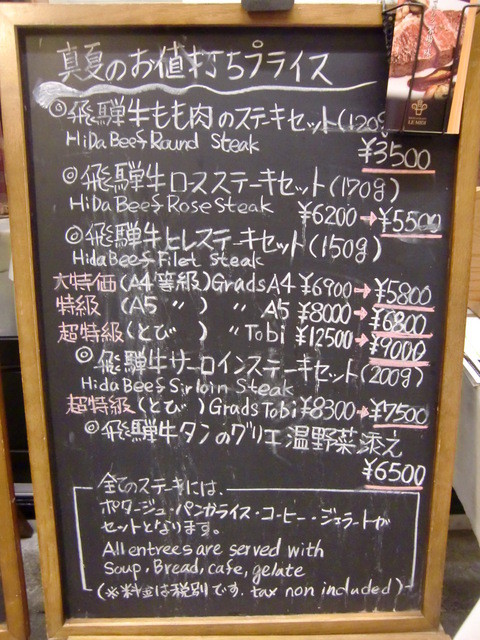 真夏のお値打ちプライス
◎飛騨牛もも肉のステキセット(120g
HiDa Beef Round Steak
¥3500
◎飛騨牛ロースステーキセット(170g)
HiDa Beef Rose Steak ¥6200→¥5500
◎飛騨牛ヒレステーキセット(150g)
Hida Beef Filet Steak
大特価(A4等級)Grads A4 ¥6900→¥5800
特級 (A5 〃 ) 〃 A5 ¥8000→¥6800
超特級(とび ) 〃 Tobi ¥12500→¥9000
◎飛騨牛サーロインステーキセット(200g)
Hida Beef Sirloin Steak
超特級(とび )Grads Tobi ¥8300→¥7500
◎飛騨牛タンのグリエ 温野菜添え
¥6500
全てのステキには、
ポタージュ・パンカライス・コーヒー・ジェラートが
セットとなります。
All entrees are served with
Soup, Bread, cafe, gelate
(※料金は税別です. tax non included)